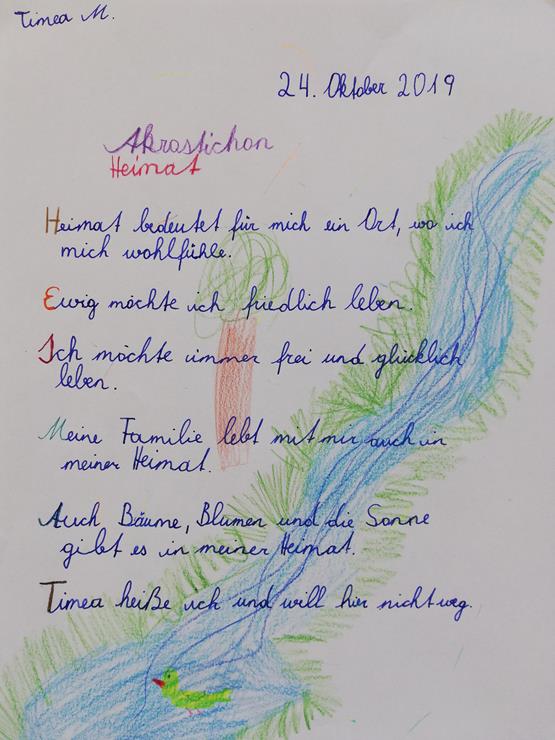 Timea M.
24. Oktober 2019
Akrostichon
Heimat
Heimat bedeutet für mich ein Ort, wo ich
mich wohlfühle.
Ewig möchte ich friedlich leben.
Ich möchte immer frei und glücklich
leben.
Meine Familie lebt mit mir auch in
meiner Heimat.
Auch Bäume, Blumen und die Sonne
gibt es in meiner Heimat.
Timea heiße ich und will hier nicht weg.